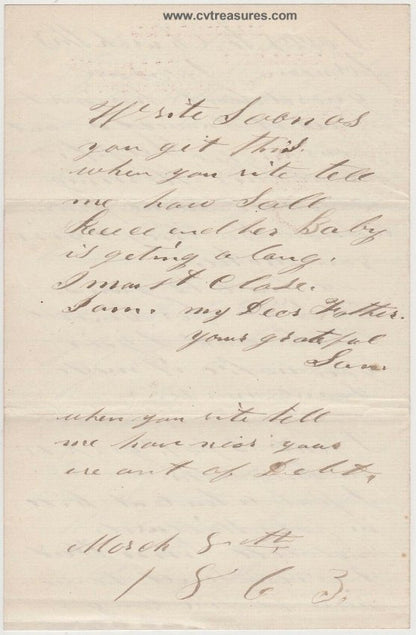 www.cvtreasures.com
Write Soon as
you git this.
when you rite tell
me how Sall
and her Baby
is geting a long.
I most Close.
I am. my Dear Father.
your grateful
Son.
when you rite tell
me how near you
are out of Debt.
March
1863.